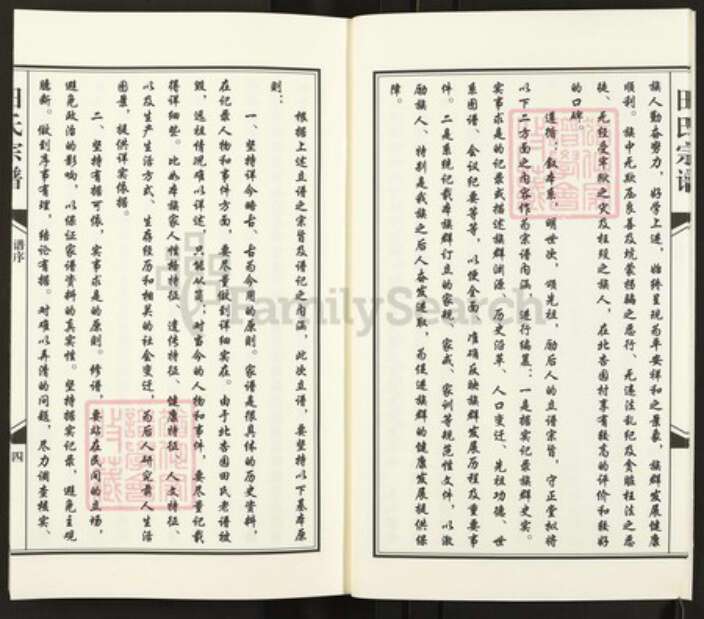 族人勤奋努力，好学上进，始终呈现为平安祥和之景象，族群发展健康
顺利。族中无欺压良善及坑蒙拐骗之恶行、无违法乱纪及贪赃枉法之恶
徒、无经受牢狱之灾及枉毁之族人，在北杏园村享有较高的评价和较好
的口碑。
遵循：叙本系，明世次，颂先祖，励后人的立谱宗旨，守正堂拟将
以下二方面之内容作为宗谱内涵，进行编纂：一是据实记录族群史实。
实事求是的记录或描述族群渊源、历史沿革、人口变迁、先祖功德、世
系图谱、会议纪要等等，以便全面、准确反映族群发展历程及重要事
件。二是系统记载本族群订立的家规、家戒、家训等规范性文件，以激
励族人、特别是我族之后人奋发进取，为促进族群的健康发展提供保
障。
田氏宗谱
根据上述立谱之宗旨及谱记之内涵，此次立谱，要坚持以下基本原
则：
一、坚持详今略古、古为今用的原则。家谱是很具体的历史资料，
在记录人物和事件方面，要尽量做到详细实在。由于北杏园田氏老谱被
毁，远祖情况难以详述，只能从简；对当今的人物和事件，要尽量记载
得详细些。比如本族家人性格特征、遗传特征、健康特征、人文特征、
以及生产生活方式、生存经历和相关的社会变迁，为后人研究前人生活
图景，提供详实依据。
二、坚持有据可依，实事求是的原则。修谱，要站在民间的立场，
避免政治的影响，以保证家谱资料的真实性。坚持据实记录，避免主观
臆断。做到序事有理，结论有据。对难以弄清的问题，尽力调查核实、
田氏宗谱
谱序
四
FamilySearch